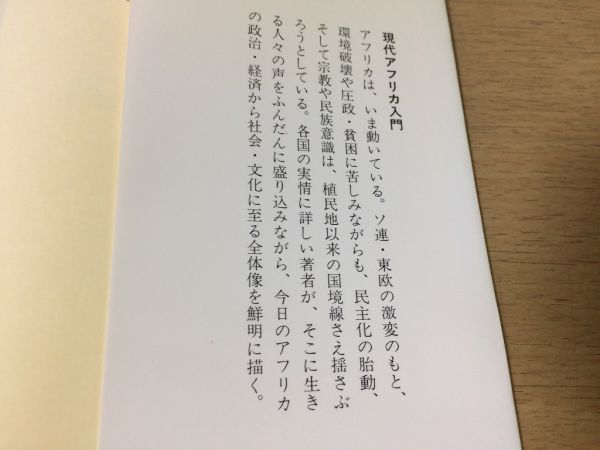 現代アフリカ入門
アフリカは、いま動いている。ソ連・東欧の激変のもと、
環境破壊や圧政・貧困に苦しみながらも、民主化の胎動、
そして宗教や民族意識は、植民地以来の国境線さえ揺さぶ
ろうとしている。各国の実情に詳しい著者が、そこに生き
る人々の声をふんだんに盛り込みながら、今日のアフリカ
の政治・経済から社会・文化に至る全体像を鮮明に描く。